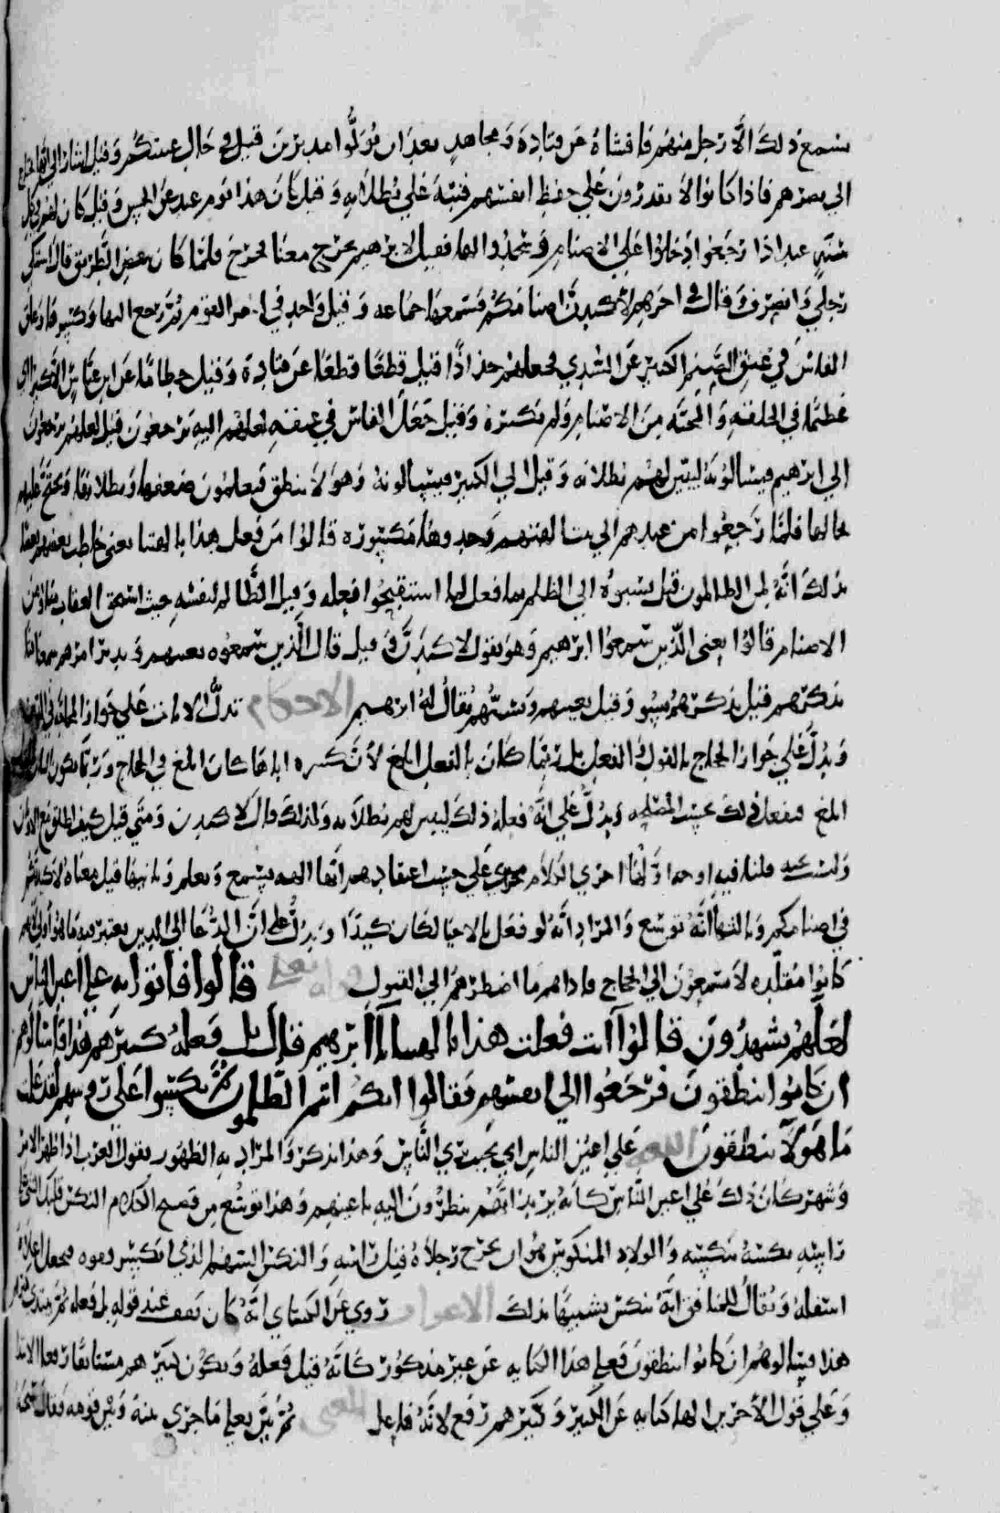 يسمع ذلك الا رجل منهم فافشاه عن قتادة ومجاهد بعد ان تولوا مدبرين قيل في حال غيبتكم وقيل اشار الى
الى بصرهم فاذا كانوا لا يقدرون على حفظ انفسهم فنبه على بطلانه وقيل كان هذا يوم عيد عن الحسن وقيل كان لهم في كل
سنة عيد اذا رجعوا دخلوا على الاصنام وسجدوا لها فقيل لابرهيم تخرج معنا فخرج فلما كان ببعض الطريق قال اشتكي
رجلي وانصرف وقال في اخرهم لاكيدن اصنامكم فسمعها جماعة وقيل واحد في اخر القوم ثم رجع اليها وكسرها وعلق
الفاس في عنق الصنم الكبير عن السدي فجعلهم جذاذا قيل قطعا قطعا عن قتادة وقيل حطاما عن ابن عباس الا كبيرا
عظيما في الخلقة من الاصنام ولم يكسره وقيل جعل الفاس في عنقه لعلهم اليه يرجعون قيل لعلهم يرجعون
الى ابرهيم فيسالونه ليبين لهم بطلانه وقيل الى الكبير فيسالونه وهو لا ينطق فيعلمون ضعفها وبطلانها
فلما رجعوا من عيدهم الى بيت الهتهم وجدوها مكسورة قالوا من فعل هذا بالهتنا يعني خاطب بعضهم بعضا
بذلك انه لمن الظالمين قيل نسبوه الى الظلم بما فعل لما استقبحوا فعله وقيل الظالم لنفسه حيث استحق العقاب
الاصنام قالوا يعني الذين سمعوا ابرهيم وهو يقول لاكيدن وقيل قال الذين سمعوه
يذكرهم قيل يذكرهم بسوء وقيل بعيبهم ويسبهم يقال له ابرهيم الاحكام تدل الايات على جواز المحاجة في الدين
ويدل على جواز الحجاج بالقول والفعل بل ربما كان بالفعل ابلغ لان كسره اياها كان ابلغ في الحجاج وربما يكون القول
ابلغ فيفعل ذلك بحسب المصلحة ويدل على انه فعل ذلك ليبين لهم بطلانه ولذلك قال لاكيدن ومتى قيل كيف اطلق
وليست قلنا فيه اوجه اولها اجرى الكلام على حسب اعتقادهم انها الهة تسمع وتعلم وثانيها قيل معناه لاكيدنكم
في اصنامكم وثالثها انه توسع والمراد انه لو فعل بالاحياء لكان كيدا ويدل على ان الدعاء الى الدين
كانوا مقلدة لا يستمعون الى الحجاج فاراهم ما اضطرهم الى القبول قوله تعالى قالوا فاتوا به على اعين الناس
لعلهم يشهدون قالوا اانت فعلت هذا بالهتنا يا ابرهيم قال بل فعله كبيرهم هذا فاسالوهم
ان كانوا ينطقون فرجعوا الى انفسهم فقالوا انكم انتم الظلمون ثم نكسوا على رؤسهم لقد علمت
ما هولاء ينطقون اللغة على اعين الناس اي بحيث يرى الناس وهذا يذكر والمراد به الظهور يقول العرب اذا ظهر الامر
وشهر كان ذلك على اعين الناس كانه يريد انهم ينظرون اليه باعينهم وهذا توسع من فصيح الكلام النكس قلبك الشي على
راسه نكسه ينكسه والولاد المنكوس هو ان يخرج رجلاه قبل راسه والنكس السهم الذي انكسر فوقه فجعل اعلاه
اسفله ويقال للجبان انه نكس تشبيها بذلك الاعراب روي عن الكسائي انه كان يقف عند قوله بل فعله ثم يبتدي كبيرهم
هذا فيسالوهم ان كانوا ينطقون فعلى هذا الكناية عن غير مذكور كانه قيل فعله ويكون كبيرهم مستانفا رفعا بالابتدا
وعلى قول الاخرين الهاء كناية عن الكبير وكبيرهم رفع لانه فاعل المعنى ثم بين تعالى ما جرى بينه وبين قومه فقال سبحانه